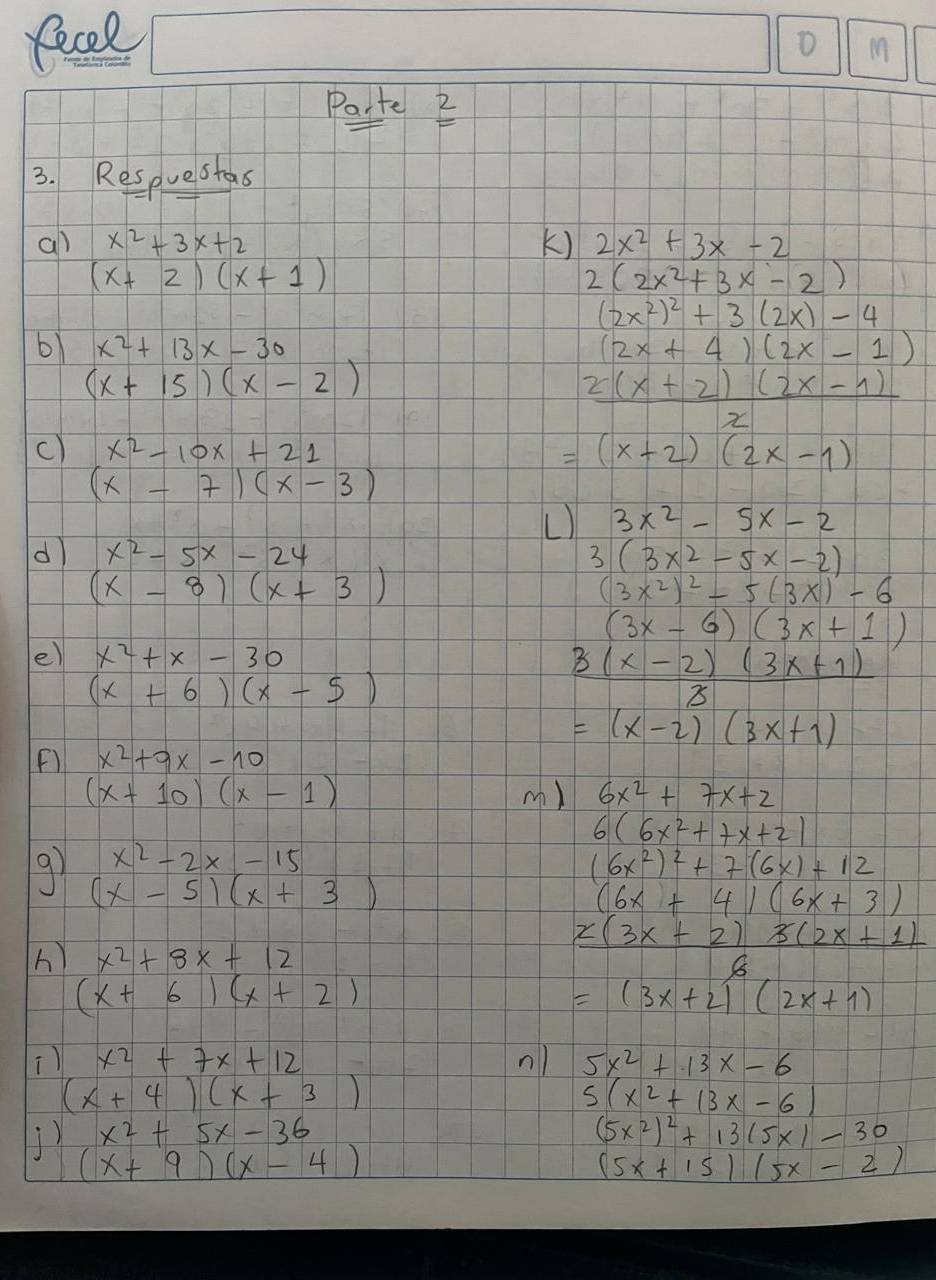 fecel
Fondo de Empleados de
Telefónica Colombia
D M
Parte 2
3. Respuestas
a) x² + 3x + 2
(x + 2) (x + 1)
b) x² + 13x - 30
(x + 15) (x - 2)
c) x² - 10x + 21
(x - 7) (x - 3)
d) x² - 5x - 24
(x - 8) (x + 3)
e) x² + x - 30
(x + 6) (x - 5)
f) x² + 9x - 10
(x + 10) (x - 1)
g) x² - 2x - 15
(x - 5) (x + 3)
h) x² + 8x + 12
(x + 6) (x + 2)
i) x² + 7x + 12
(x + 4) (x + 3)
j) x² + 5x - 36
(x + 9) (x - 4)
K) 2x² + 3x - 2
2(2x² + 3x - 2)
(2x²)² + 3(2x) - 4
(2x + 4) (2x - 1)
2(x + 2) (2x - 1)
2
= (x+2) (2x - 1)
L) 3x² - 5x - 2
3(3x² - 5x - 2)
(3x²)² - 5(3x) - 6
(3x - 6) (3x + 1)
3(x - 2) (3x + 1)
3
= (x - 2) (3x + 1)
m) 6x² + 7x + 2
6(6x² + 7x + 2)
(6x²)² + 7(6x) + 12
(6x + 4) (6x + 3)
2(3x + 2) 3(2x + 1)
6
= (3x + 2) (2x + 1)
n) 5x² + 13x - 6
5(x² + 13x - 6)
(5x²)² + 13(5x) - 30
(5x + 15) (5x - 2)